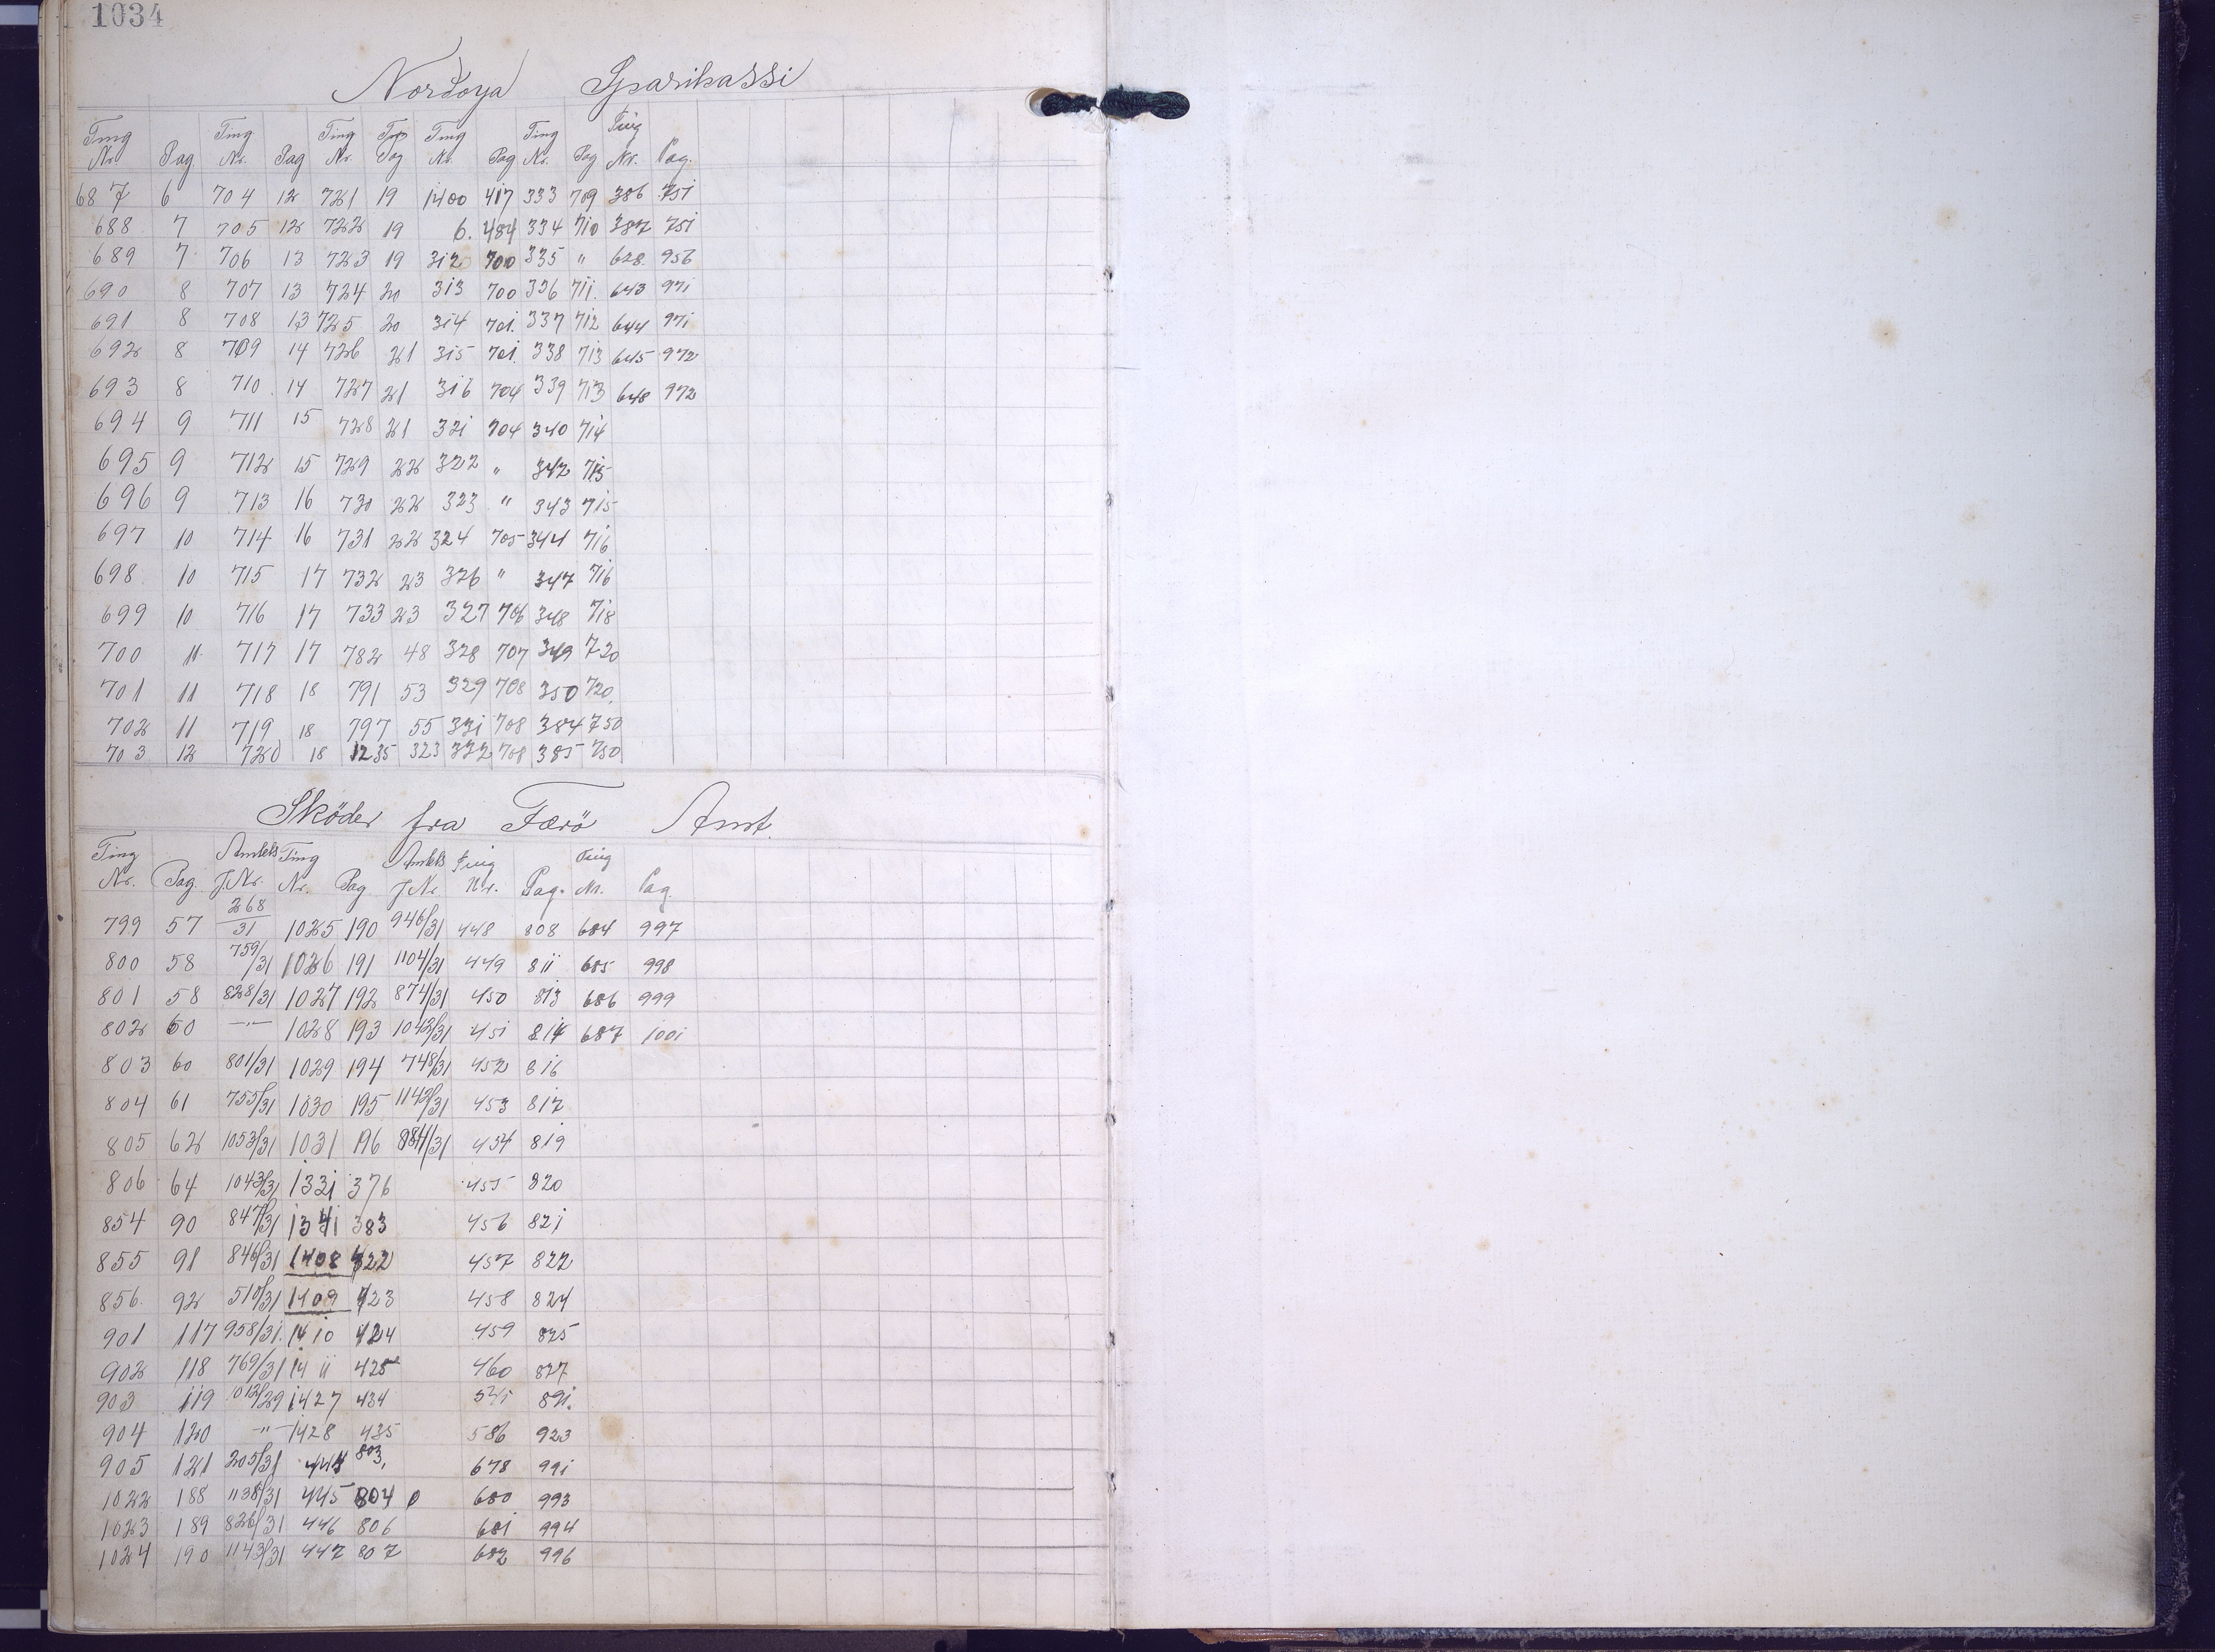 1034
Nordoya Sparikassi
Ting Ting Ting Ting Ting Ting
Nr Pag Nr. Pag Nr. Pag Nr. Pag Nr. Pag Nr. Pag.
687 6 704 12 721 19 1400 417 333 709 386 751
688 7 705 12 722 19 6. 484 334 710 387 751
689 7 706 13 723 19 312 700 335 " 628 956
690 8 707 13 724 20 313 700 336 711. 643 971
691 8 708 13 725 20 314 701. 337 712 644 971
692 8 709 14 726 21 315 701. 338 713 645 972
693 8 710 14 727 21 316 704 339 713 648 972
694 9 711 15 728 21 321 704 340 714
695 9 712 15 729 22 322 " 342 715
696 9 713 16 730 22 323 " 343 715
697 10 714 16 731 22 324 705 344 716
698 10 715 17 732 23 326 " 347 716
699 10 716 17 733 23 327 706 348 718
700 11 717 17 782 48 328 707 349 720
701 11 718 18 791 53 329 708 350 720
702 11 719 18 797 55 331 708 384 750
703 12 720 18 1235 323 332 708 385 750
Sköder fra Færö Amt.
Ting Amtets Ting Amtets Ting Ting
Nr. Pag. J.Nr. Nr. Pag J Nr Nr. Pag. Nr. Pag
799 57 268/31 1025 190 946/31 448 808 684 997
800 58 759/31 1026 191 1104/31 449 811 685 998
801 58 828/31 1027 192 874/31 450 813 686 999
802 60 —"— 1028 193 1042/31 451 814 687 1001
803 60 801/31 1029 194 748/31 452 816
804 61 755/31 1030 195 1142/31 453 817
805 62 1053/31 1031 196 884/31 454 819
806 64 1043/31 1331 376 455 820
854 90 847/31 1341 383 456 821
855 91 846/31 1408 422 457 822
856. 92 510/31 1409 423 458 824
901 117 958/31. 1410 424 459 825
902 118 769/31 1411 425 460 827
903 119 1427 434 891.
904 120 —"— 1428 435 586 923
905 121 205/31 444 803, 678 991
1022 188 1138/31 445 804 680 993
1023 189 826/31 446 806 681 994
1024 190 1143/31 447 807 682 996